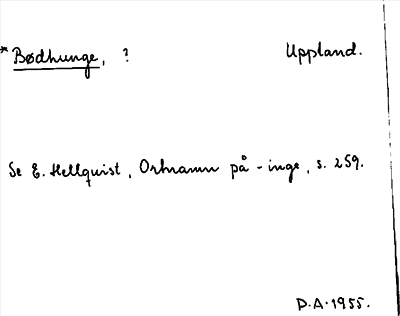 *Bødhunge, ? Uppland.
Se E. Hellquist, Ortnamn på -inge, s. 259.
D.A. 1955.